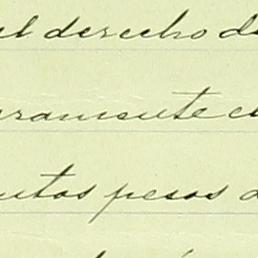 el derecho d
aramente c
ntos pesos d